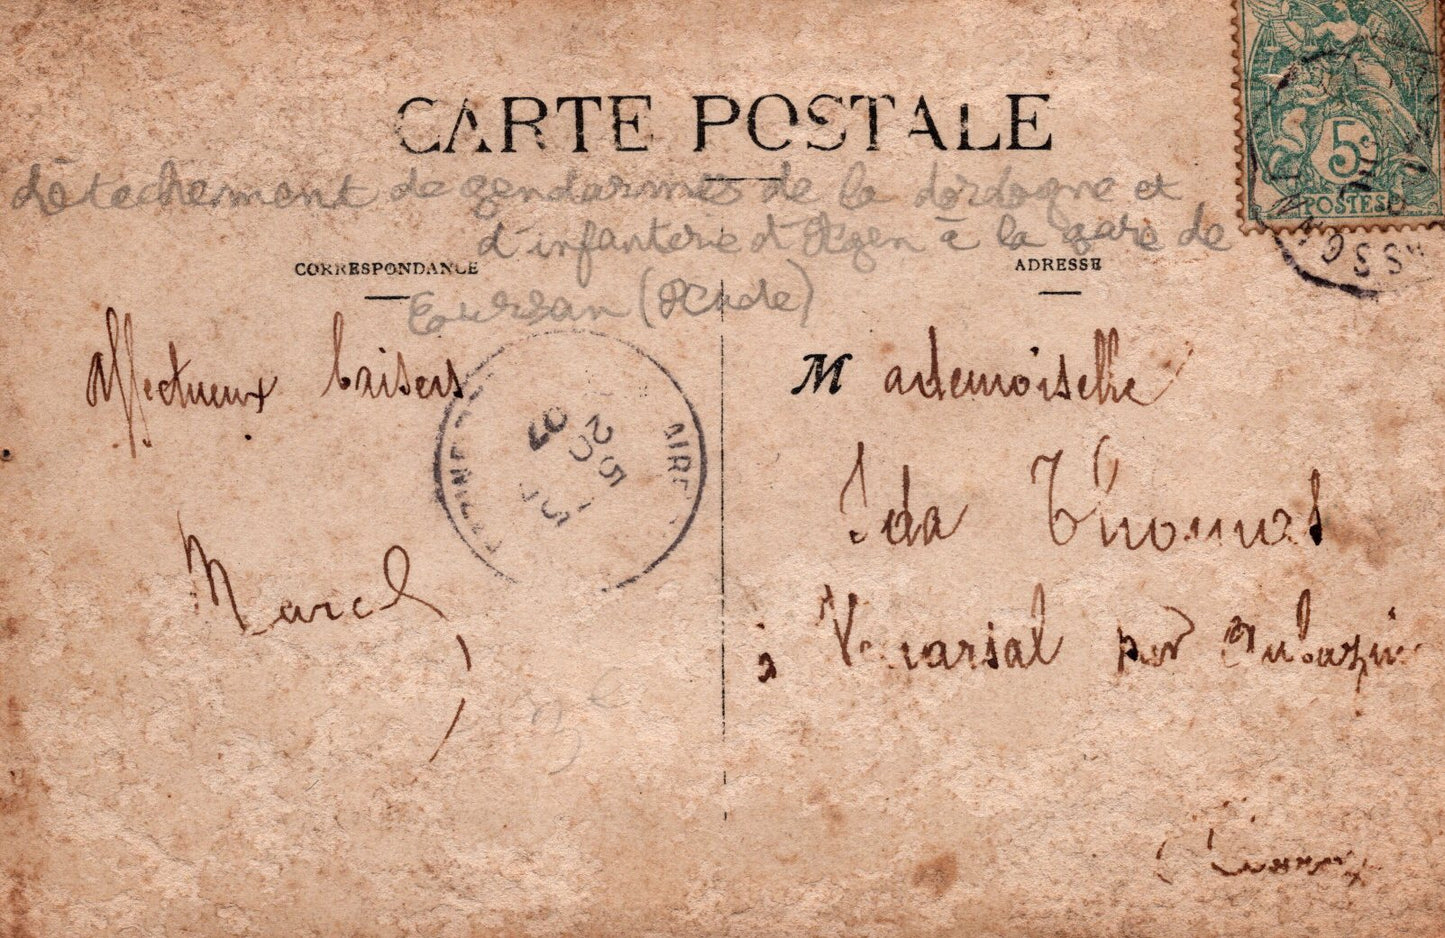 CARTE POSTALE
détachement de gendarmes de la dordogne et
d'infanterie d'Agen à la gare de
Coursan (Aude)
CORRESPONDANCE
ADRESSE
Affectueux baisers
Marcel
Mademoiselle
Ida Thomas
à par Aubazine
5c
POSTES
25
07
AIRE